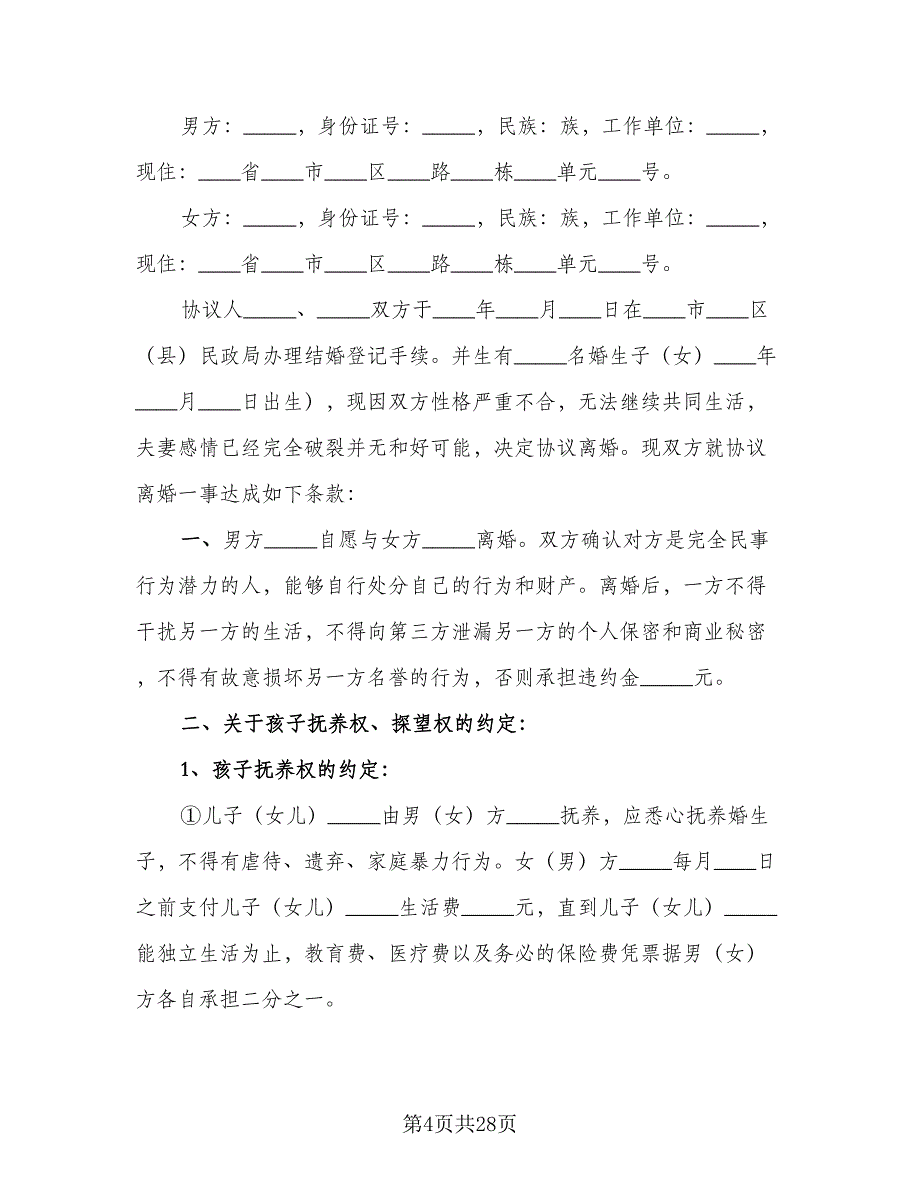 男方：_____，身份证号：_____，民族：族，工作单位：_____，
现住：____省____市____区____路____栋____单元____号。
女方：_____，身份证号：_____，民族：族，工作单位：_____，
现住：____省____市____区____路____栋____单元____号。
协议人_____、_____双方于____年____月____日在____市____区
（县）民政局办理结婚登记手续。并生有_____名婚生子（女）____年
____月____日出生），现因双方性格严重不合，无法继续共同生活，
夫妻感情已经完全破裂并无和好可能，决定协议离婚。现双方就协议
离婚一事达成如下条款：
一、男方_____自愿与女方_____离婚。双方确认对方是完全民事
行为潜力的人，能够自行处分自己的行为和财产。离婚后，一方不得
干扰另一方的生活，不得向第三方泄漏另一方的个人保密和商业秘密
，不得有故意损坏另一方名誉的行为，否则承担违约金_____元。
二、关于孩子抚养权、探望权的约定：
1、孩子抚养权的约定：
①儿子（女儿）_____由男（女）方_____抚养，应悉心抚养婚生
子，不得有虐待、遗弃、家庭暴力行为。女（男）方_____每月____日
之前支付儿子（女儿）_____生活费_____元，直到儿子（女儿）_____
能独立生活为止，教育费、医疗费以及务必的保险费凭票据男（女）
方各自承担二分之一。
第4页共28页